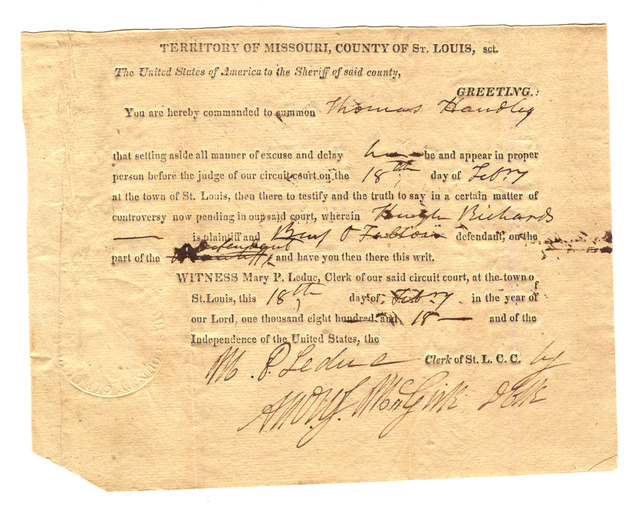 TERRITORY OF MISSOURI, COUNTY OF ST. LOUIS, sct.
The United States of America to the Sheriff of said county,
GREETING:
You are hereby commanded to summon Thomas Handley
that setting aside all manner of excuse and delay he be and appear in proper
person before the judge of our circuit court on the 18th day of Feb'y
at the town of St. Louis, then there to testify and the truth to say in a certain matter of
controversy now pending in our said court, wherein Hugh Richards
— is plaintiff and Benj O Fallon defendant, on the
part of the defendant and have you then there this writ.
WITNESS Mary P. Leduc, Clerk of our said circuit court, at the town of
St. Louis, this 18th day of Feb'y. in the year of
our Lord, one thousand eight hundred and 18 — and of the
Independence of the United States, the
M. P. Leduc Clerk of St. L. C. C. by